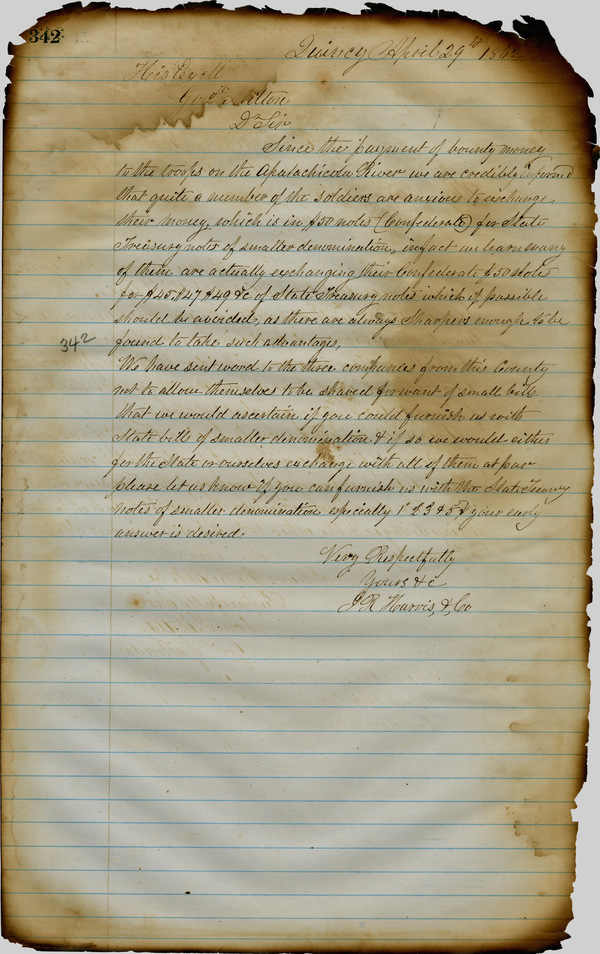 342
Quincy April 29th 186
His Excell
Gov Milton
Dr Sir
Since the payment of bounty money
to the troops on the Apalachicola River we are credibly informd
that quite a number of the soldiers are anxious to exchange
their money, which is in $50 notes (Confederate) for State
Treasury notes of smaller denomination, infact we learn many
of them are actually exchanging their Confederate $50 Notes
for $45 $47 $49 &c of State Treasury notes which if possible
should be avoided, as there are always Sharpers enough to be
found to take such advantages,
342
We have sent word to the three companies from this County
not to allow themselves to be shaved for want of small bills
that we would ascertain if you could furnish us with
State bill of smaller denomination & if so we would either
for the State or ourselves exchange with all of them at par
please let us know if you can furnish us with the State Treasury
notes of smaller denomination especially 1s 2 3 & 5 & your early
answer is desired
Very Respectfully
Yours &c
J R Harris, & Co